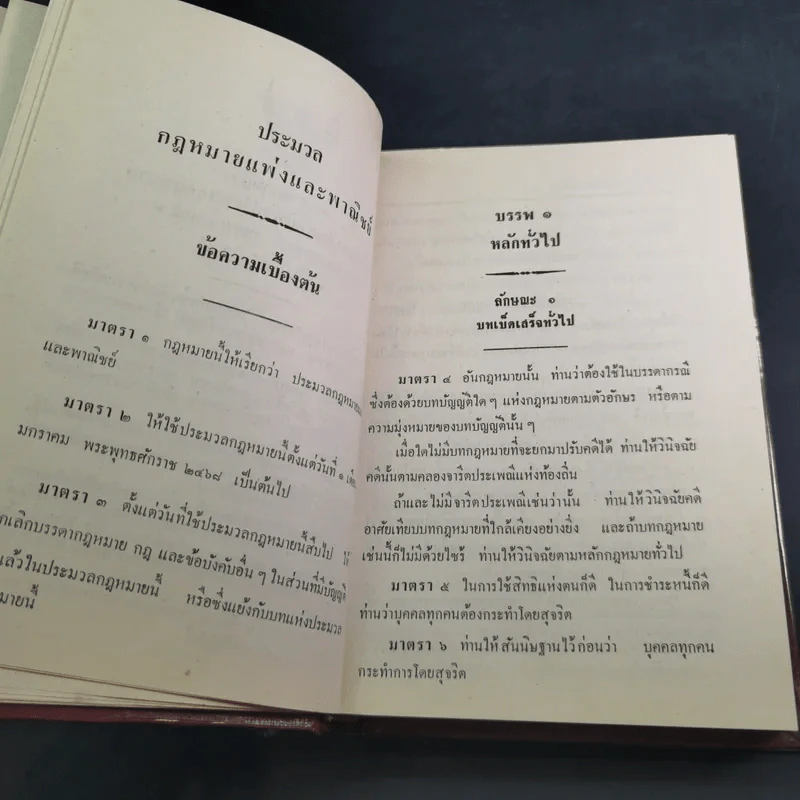 ประมวล
กฎหมายแพ่งและพาณิชย์
ข้อความเบื้องต้น
มาตรา ๑ กฎหมายนี้ให้เรียกว่า ประมวลกฎหมาย
และพาณิชย์
มาตรา ๒ ให้ใช้ประมวลกฎหมายนี้ตั้งแต่วันที่ ๑
มกราคม พระพุทธศักราช ๒๔๖๘ เป็นต้นไป
มาตรา ๓ ตั้งแต่วันที่ใช้ประมวลกฎหมายนี้สืบไป
กเลิกบรรดากฎหมาย กฎ และข้อบังคับอื่น ๆ ในส่วนที่มีบัญญัติ
แล้วในประมวลกฎหมายนี้ หรือซึ่งแย้งกับบทแห่งประมวล
หมายนี้
บรรพ ๑
หลักทั่วไป
ลักษณะ ๑
บทเบ็ดเสร็จทั่วไป
มาตรา ๔ อันกฎหมายนั้น ท่านว่าต้องใช้ในบรรดากรณี
ซึ่งต้องด้วยบทบัญญัติใด ๆ แห่งกฎหมายตามตัวอักษร หรือตาม
ความมุ่งหมายของบทบัญญัตินั้น ๆ
เมื่อใดไม่มีบทกฎหมายที่จะยกมาปรับคดีได้ ท่านให้วินิจฉัย
คดีนั้นตามคลองจารีตประเพณีแห่งท้องถิ่น
ถ้าและไม่มีจารีตประเพณีเช่นว่านั้น ท่านให้วินิจฉัยคดี
อาศัยเทียบบทกฎหมายที่ใกล้เคียงอย่างยิ่ง และถ้าบทกฎหมาย
เช่นนี้ก็ไม่มีด้วยไซร้ ท่านให้วินิจฉัยตามหลักกฎหมายทั่วไป
มาตรา ๕ ในการใช้สิทธิแห่งตนก็ดี ในการชำระหนี้ก็ดี
ท่านว่าบุคคลทุกคนต้องกระทำโดยสุจริต
มาตรา ๖ ท่านให้สันนิษฐานไว้ก่อนว่า บุคคลทุกคน
กระทำการโดยสุจริต